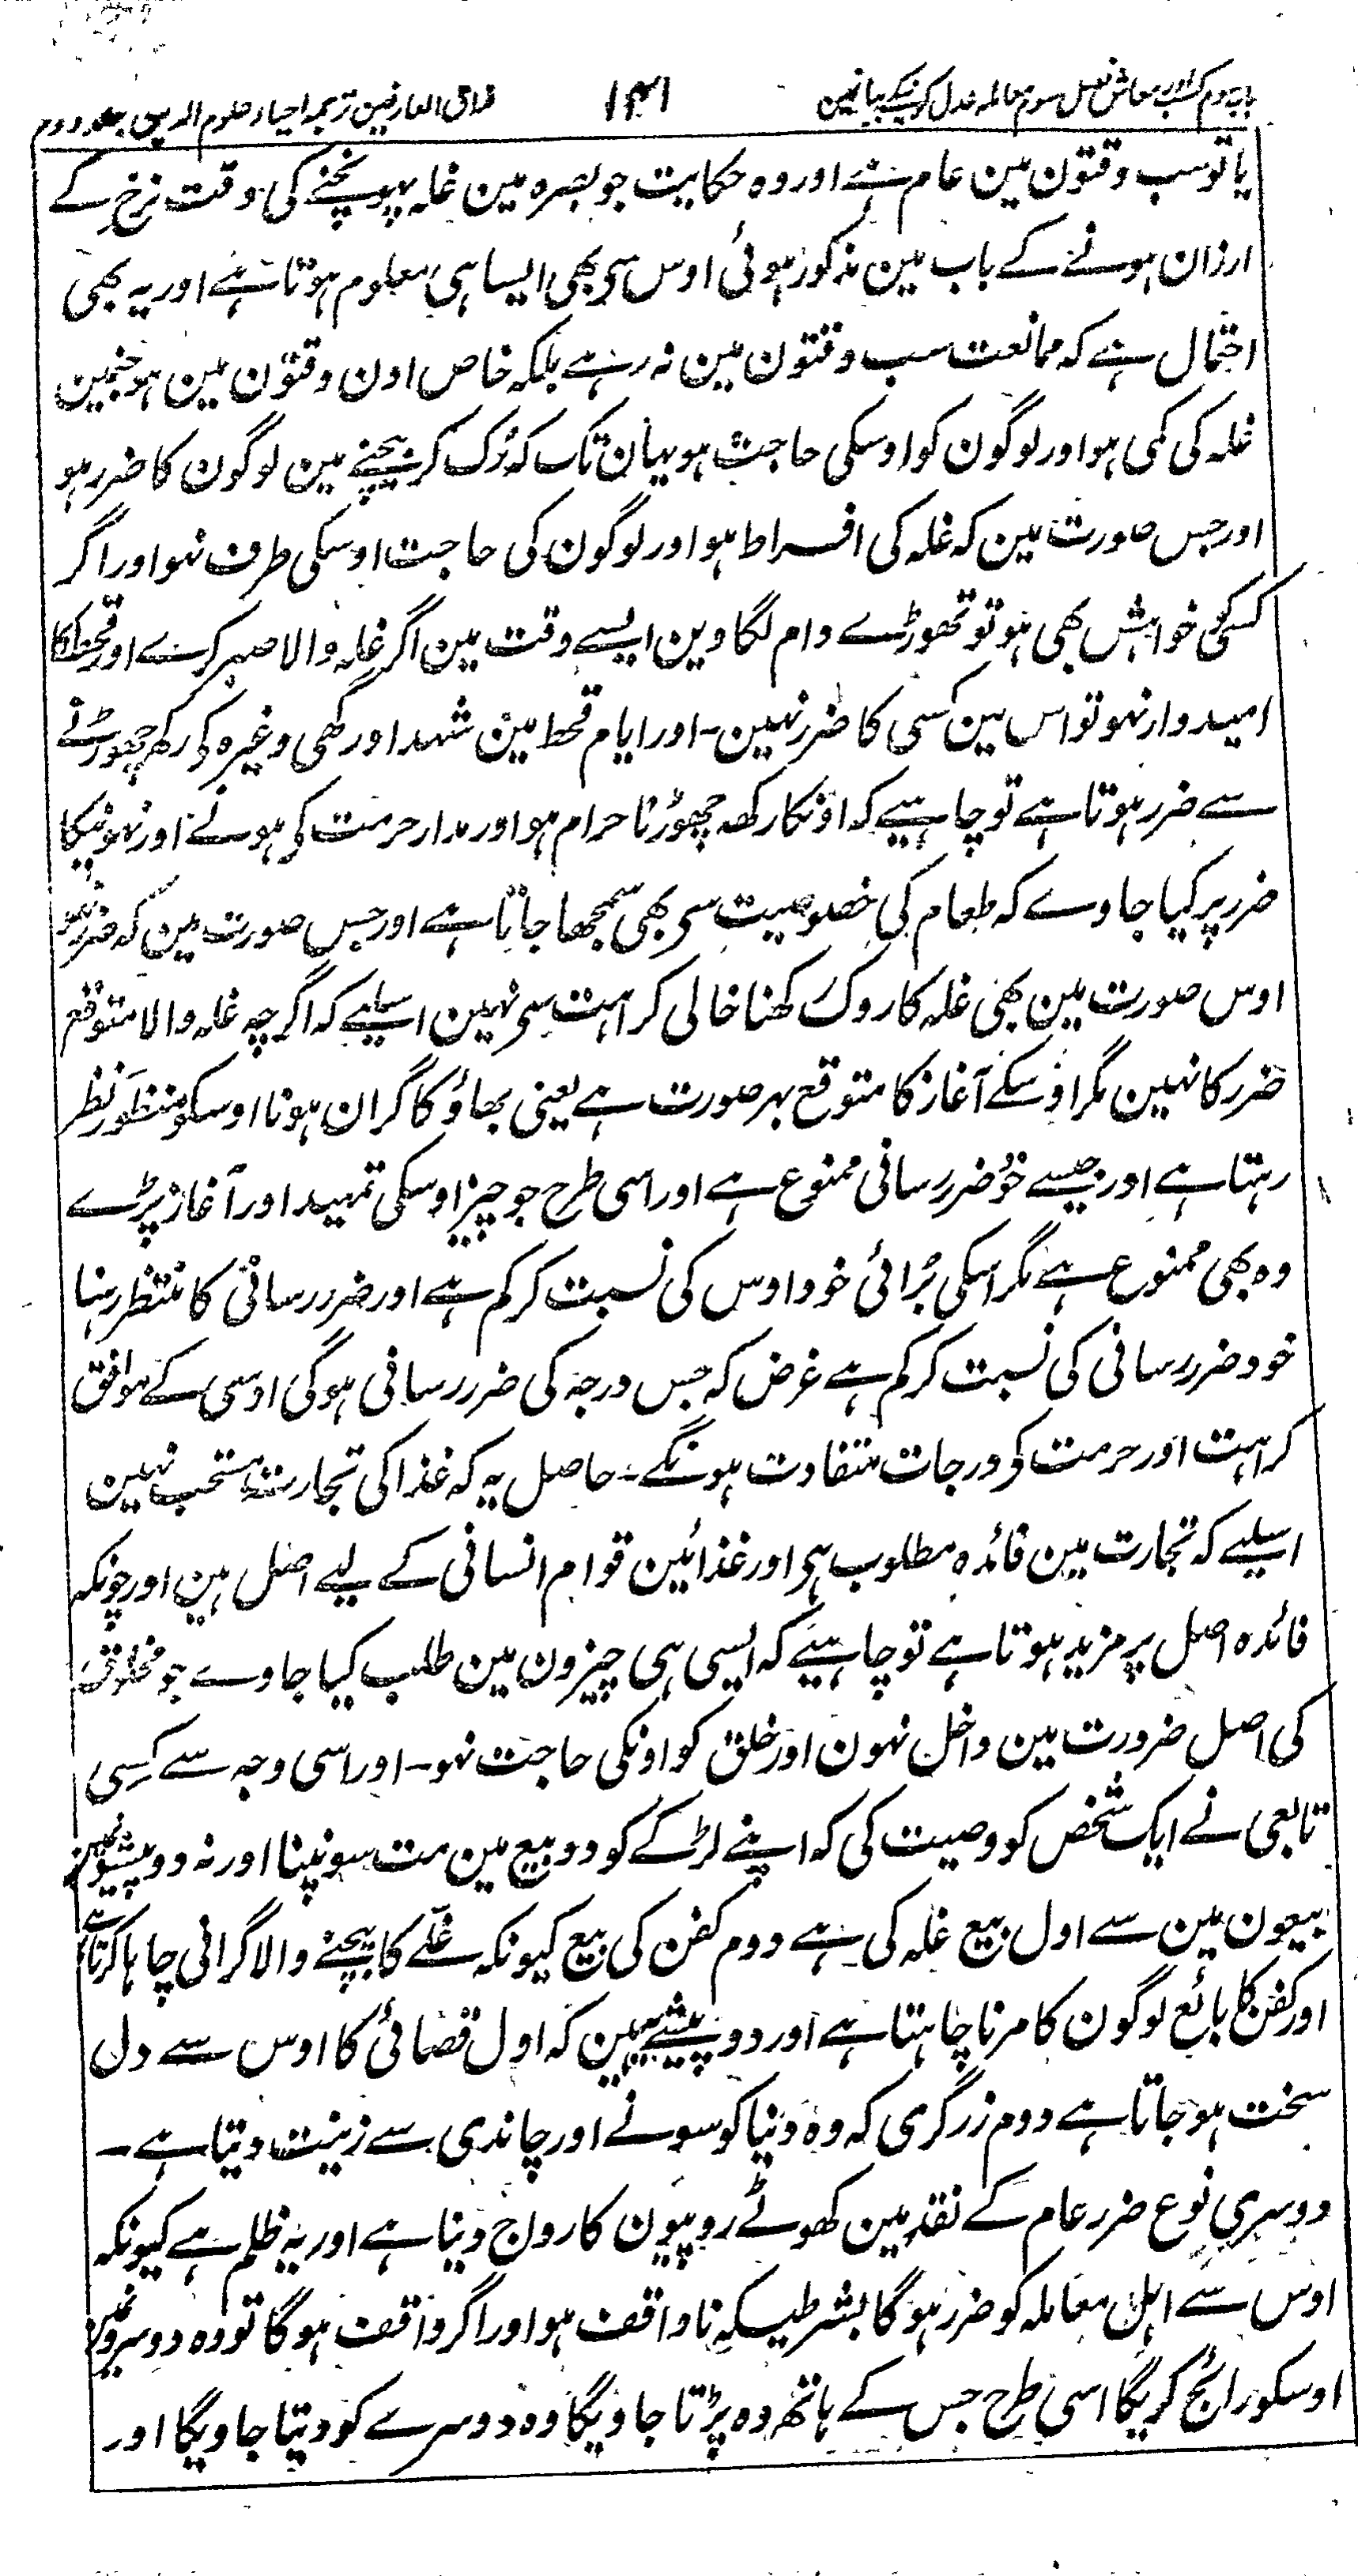 باب سوم کسب اور معاش فصل سوم معاملہ عدل کرنیکے بیانمین ۱۴۱ مذاق العارفین ترجمہ احیاء علوم الدین جلد دوم
یا تو سب وقتون مین عام ہے اور وہ حکایت جو بصرہ مین غلہ پہونچنے کی وقت نرخ کے
ارزان ہونے کے باب مین مذکور ہوئی اوس سی بھی ایسا ہی معلوم ہوتا ہے اور یہ بھی
احتمال ہے کہ ممانعت سب وقتون مین نہ رہے بلکہ خاص اون وقتون مین ہو جنمین
غلہ کی کمی ہو اور لوگون کو اوسکی حاجت ہو یہان تک کہ رُک کر بیچنے مین لوگون کا ضرر ہو
اور جس صورت مین کہ غلہ کی افراط ہو اور لوگون کی حاجت اوسکی طرف نہو اور اگر
کسکی خواہش بھی ہو تو تھوڑے دام لگا دین ایسے وقت مین اگر غلہ والا صبر کرے اور قحط کا
امیدوار نہو تو اس مین کسی کا ضرر نہین - اور ایام قحط مین شہد اور گھی وغیرہ کی رکھ چھوڑنے
سے ضرر ہوتا ہے تو چاہیے کہ اونکا رکھ چھوڑنا حرام ہو اور مدار حرمت کی ہونے اور نہونیکا
ضرر پر کیا جاوے کہ طعام کی خصوصیت سی بھی سمجھا جاتا ہے اور جس صورت مین کہ ضرر نہو
اوس صورت مین بھی غلہ کا روک رکھنا خالی کراہت سی نہین اسلیے کہ اگرچہ غلہ والا متوقع
ضرر کا نہین مگر اوسکے آغاز کا متوقع بہر صورت ہے یعنی بھاؤ کا گران ہونا اوسکو منظور نظر
رہتا ہے اور جیسے خود ضرر رسانی ممنوع ہے اور اسی طرح جو چیز اوسکی تمہید اور آغاز پڑے
وہ بھی ممنوع ہے مگر اسکی بُرائی خود اوس کی نسبت کر کم ہے اور ضرر رسانی کا منتظر رہنا
خود ضرر رسانی کی نسبت کر کم ہے غرض کہ جس درجہ کی ضرر رسانی ہوگی اوسی کے موافق
کراہت اور حرمت کی درجات متفاوت ہونگے - حاصل یہ کہ غذا کی تجارت مستحب نہین
اسلیے کہ تجارت مین فائدہ مطلوب ہی اور غذائین قوام انسانی کے لیے اصل ہین اور چونکہ
فائدہ اصل پر مزید ہوتا ہے تو چاہیے کہ ایسی ہی چیزون مین طلب کیا جاوے جو مخلوق
کی اصل ضرورت مین داخل نہون اور خلق کو اونکی حاجت نہو - اور اسی وجہ سے کسی
تابعی نے ایک شخص کو وصیت کی کہ اپنے لڑکے کو دو بیع مین مت سونپنا اور نہ دو پیشونمین
بیعون مین سے اول بیع غلہ کی ہے دوم کفن کی بیع کیونکہ غلے کا بیچنے والا گرانی چاہا کرتا ہے
اور کفن کا بائع لوگون کا مرنا چاہتا ہے اور دو پیشے یہ ہین کہ اول قصائی کا اوس سے دل
سخت ہو جاتا ہے دوم زرگری کہ وہ دنیا کو سونے اور چاندی سے زینت دیتا ہے -
دوسری نوع ضرر عام کے نقد مین کھوٹے روپیون کا رواج دینا ہے اور یہ ظلم ہے کیونکہ
اوس سے اہل معاملہ کو ضرر ہوگا بشرطیکہ ناواقف ہو اور اگر واقف ہوگا تو وہ دوسرونمین
اوسکو رائج کریگا اسی طرح جس کے ہاتھ وہ پڑتا جاویگا وہ دوسرے کو دیتا جاویگا اور